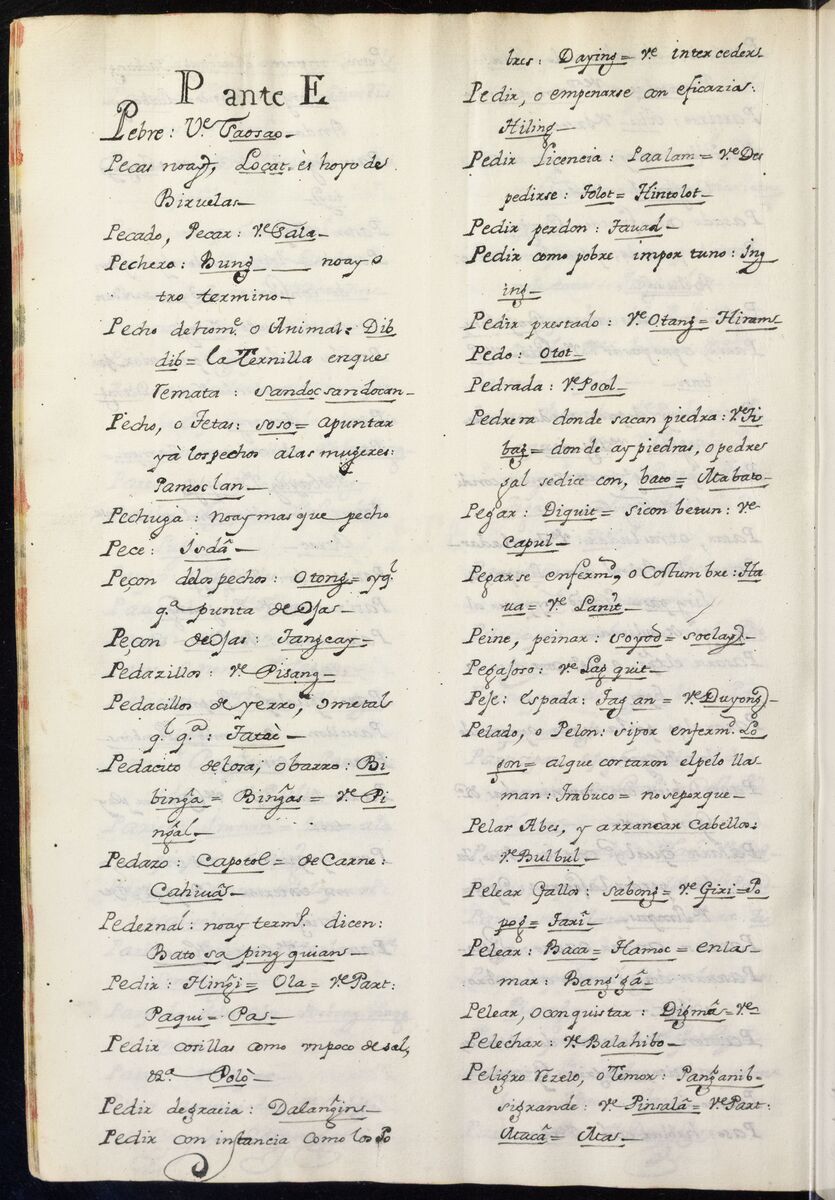 P ante E
Pebre: Ve Taosao_
Pecas noay, Locat, ès hoyo de
Biruelas_
Pecado, Pecar: Ve Sala_
Pechero: Bung_ ___ noay o
tro termino_
Pecho dehome. o Animal: Dib
dib= la Ternilla enque
remata: sandoc sandocan_
Pecho, o Tetas: soso= apuntar
yà los pechos alas mugeres:
Pamoclan_
Pechuga: noay mas que pecho
Pece: Isdâ_
Peçon delos pechos: Otong= yql.
qa punta de ojas_
Peçon de ojas: Tangcay_
Pedazillos: Ve Pisang_
Pedacillos de yerro, o metal
ql qa: Tataè_
Pedacito de losa, o barro: Bi
bingȃ= Bingȃs= Ve Pi
ngȃl_
Pedazo: Capotol= de Carne:
Cahiuâs_
Pedernal: noay terml. dicen:
Bato sa pingquian_
Pedir: Hingi= Ola= Ve Part:
Paqui= Pas_
Pedir cosillas como unpoco de sal,
&a. Polò_
Pedir degracia: Dalangins_
Pedir con instancia como los Po
bres: Daying= Ve interceders
Pedir, o empenarse con eficazia:
Hiling_
Pedir licencia: Paalam= Ve Des
pedirse: Tolot= Hintolot_
Pedir perdon: Tauad_
Pedir como pobre importuno: Ing
ing_
Pedir prestado: Ve Otang= Hirams
Pedo: Otot_
Pedrada: Ve Pocol_
Pedrera donde sacan piedra: Ve Ti
bag= donde ay piedras, o pedre
gal sedice con, bato= Atabato_
Pegar: Diquit= sicon betun: Ve
Capul_
Pegarse enfermd, o Costumbre: Ha
ua= Ve Lanit_
Peine, peinar: soyod= soclay_
Pegajoso: Ve Lapquit_
Peje: Espada: Tagan= Ve Duyong_
Pelado, o Pelon: sipor enfermd. Lo
gon= alque cortaron elpelo lla
man: Imbuco= noseporque_
Pelar Abes, y arrancar Cabellos:
Ve Bulbul_
Pelear Gallos: sabong= Ve Giri= Po
pog= Tarî_
Pelear: Baca= Hamoc= enla
mar: Bang'gâ_
Pelear, o conquistar: Digmâ= Ve
Pelechar: Ve Balahibo_
Peligro Rezelo, o Temor: Panganib_
sigrande: Ve Pinsalâ= Ve Part:
Atacâ= Atas_